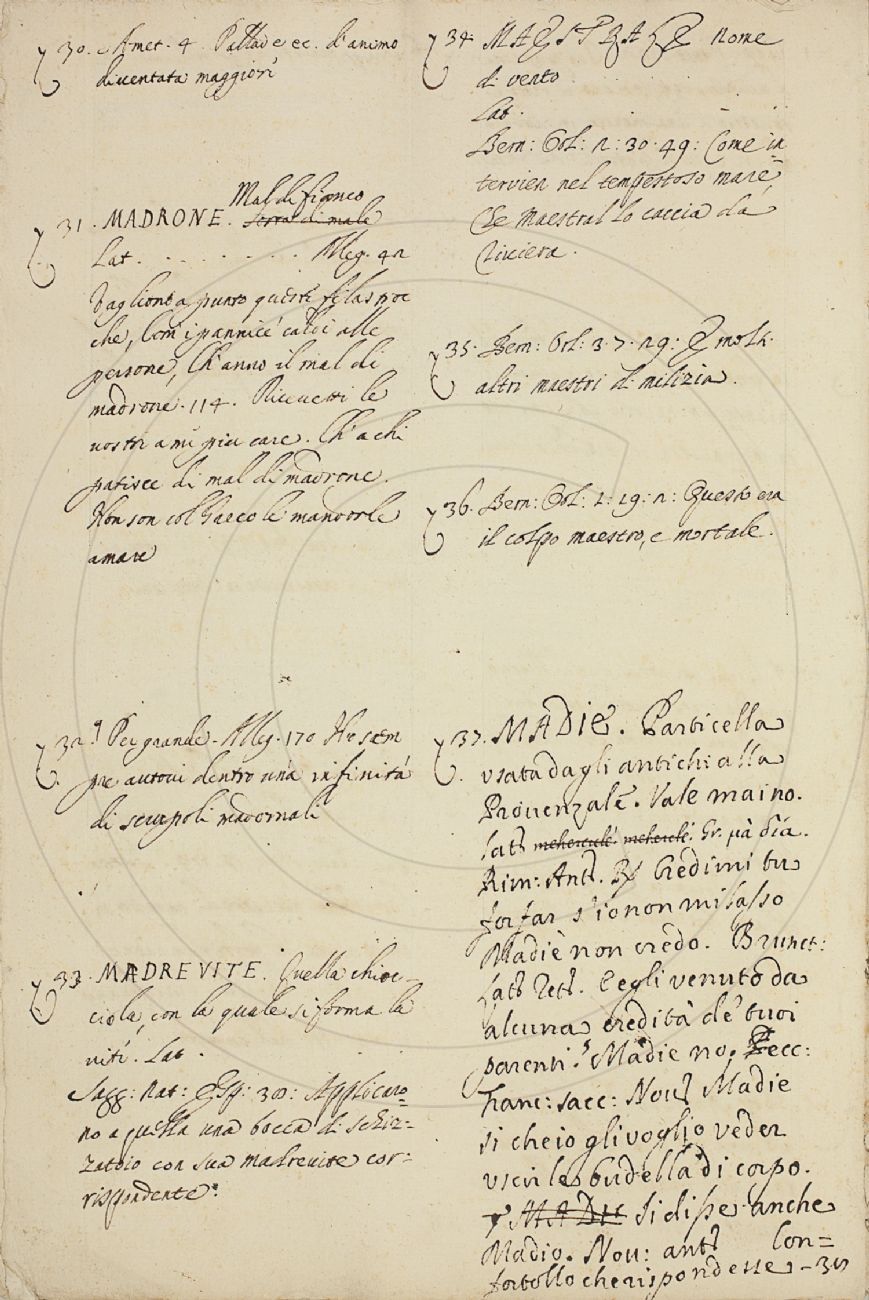 30. Amet. 4. Pallade ec. d'animo
diventata maggiori
31. MADRONE. Mal di fianco
Lat. . . . . . . . . Alleg. 42
che, com' i pannicc' caldi alle
persone, Ch' anno il mal di
madrone. 114. Ricevetti le
vostre a mè piu care. Ch' a chi
patisce di mal di madrone.
Non son col Greco le mandorle
amare
32. Per grande. Alleg. 170 Ho sem
pre autovi dentro una infinità
di scrupoli madornali
33. MADREVITE. Quella chioc-
ciola, con la quale si forma la
vite. Lat.
Sagg: Nat: Esp: 30: Applicaro=
no a quella una bocca di schiz=
zatoio con sua madrevite cor=
rispondente.
34. MAESTRALE Nome
di vento
Lat.
Bern: Orl: 2: 30. 49: Come in
tervien nel tempestoso mare,
Che Maestral lo caccia da
riviera.
35. Bern: Orl: 3. 7. 29: E molti
altri maestri di milizia.
36. Bern: Orl: 1: 19: 2: Questo era
il colpo maestro, e mortale.
37. MADIE. Particella
usata dagli antichi alla
Provenzale. Vale maino.
Lat. mehercule. mehercle. Gr. μὰ δία.
Rim: Ant. Credimi tu
forfar s'io non mi lasso
Madiè non credo. Brunet:
Lat. Ret. E egli venuto da
alcuna eredità de' tuoi
parenti? Madie no. ecc:
Franc: Sacc: Nov. Madie
si che io gli voglio veder
uscir le budella di corpo.
MADIE Si disse anche
Madio. Nov: ant. Con=
fortollo che rispondesse